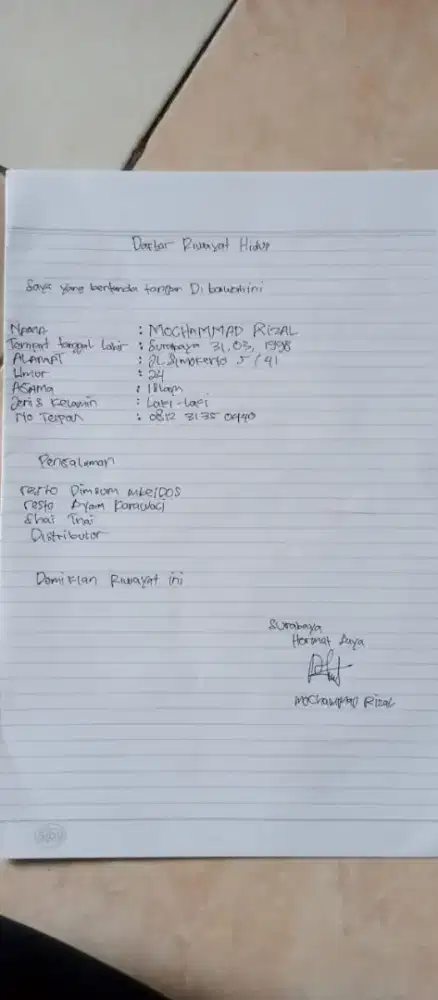 Daftar Riwayat Hidup
Saya yang bertanda tangan Di bawah ini
Nama : MOCHAMMAD RIZAL
Tempat tanggal lahir : Surabaya 31.03, 1998
ALAMAT : JL. Simokerto 5 / 41
Umur : 24
AGAMA : Islam
Jenis Kelamin : Laki-laki
No Telpon : 0812 3135 0440
Pengalaman
resto Dimsum
resto Ayam Karawaci
Shai Thai
Distributor
Demikian Riwayat ini
Surabaya
Hormat Saya
MOCHAMMAD RIZAL